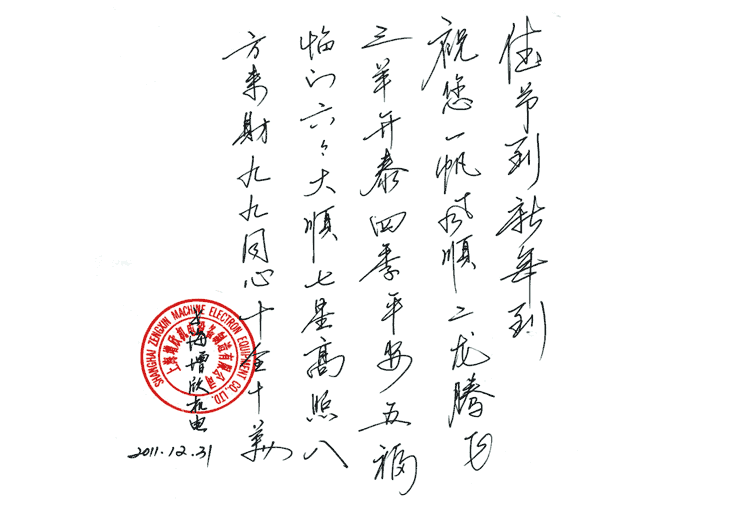 佳节到新年到
祝您一帆风顺二龙腾飞
三羊开泰四季平安五福
临门六六大顺七星高照八
方来财九九同心十全十美
上海增欣机电
2011.12.31
SHANGHAI ZENGXIN MACHINE ELECTRON EQUIPMENT CO.,LTD.
上海增欣机电设备制造有限公司